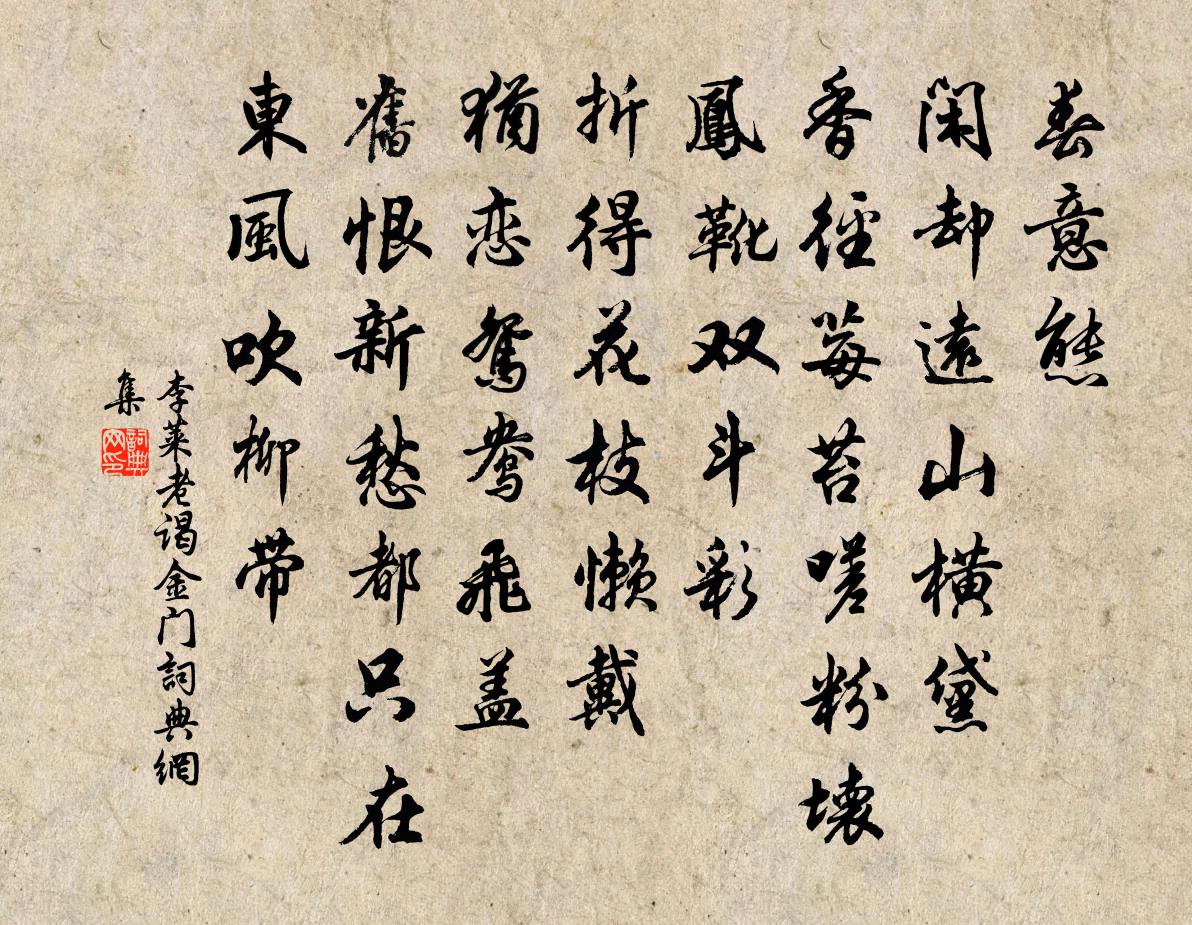 春意態
閑却遠山橫黛
香徑莓苔嗟粉壞
鳳靴双斗彩
折得花枝懶戴
猶恋鴛鴦飛盖
舊恨新愁都只在
東風吹柳帶
李莱老谒金门詞典網
集
詞典
网印